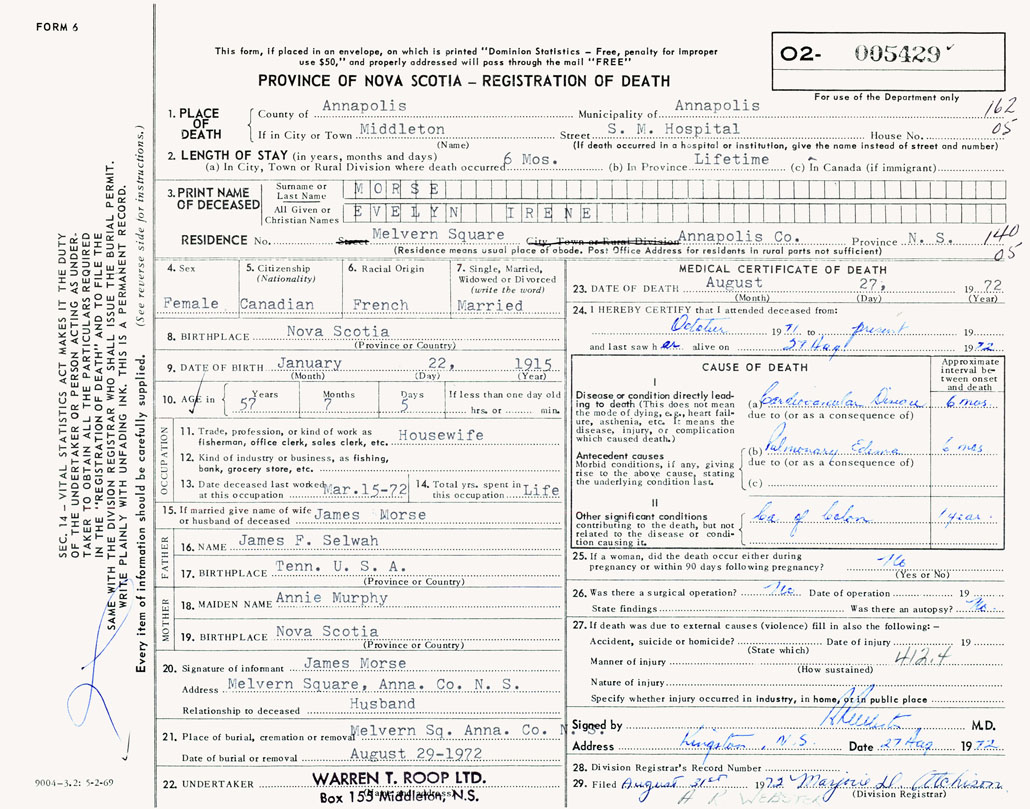 FORM 6
This form, if placed in an envelope, on which is printed "Dominion Statistics – Free, penalty for improper
use $50," and properly addressed will pass through the mail "FREE"
PROVINCE OF NOVA SCOTIA – REGISTRATION OF DEATH
O2- 005429
For use of the Department only
162
05
1. PLACE OF DEATH
County of Annapolis Municipality of Annapolis
If in City or Town Middleton Street S. M. Hospital House No.
(Name) (If death occurred in a hospital or institution, give the name instead of street and number)
2. LENGTH OF STAY (in years, months and days)
(a) In City, Town or Rural Division where death occurred 6 Mos. (b) In Province Lifetime (c) In Canada (if immigrant)
3. PRINT NAME OF DECEASED
Surname or Last Name MORSE
All Given or Christian Names EVELYN IRENE
RESIDENCE No. Street Melvern Square City, Town or Rural Division Annapolis Co. Province N. S.
(Residence means usual place of abode. Post Office Address for residents in rural parts not sufficient)
140
05
SEC. 14 – VITAL STATISTICS ACT MAKES IT THE DUTY
OF THE UNDERTAKER OR PERSON ACTING AS UNDER-
TAKER TO OBTAIN ALL THE PARTICULARS REQUIRED
IN THE "REGISTRATION OF DEATH" AND TO FILE THE
SAME WITH THE DIVISION REGISTRAR WHO SHALL ISSUE THE BURIAL PERMIT.
WRITE PLAINLY WITH UNFADING INK. THIS IS A PERMANENT RECORD.
Every item of information should be carefully supplied. (See reverse side for instructions.)
4. Sex
Female
5. Citizenship
(Nationality)
Canadian
6. Racial Origin
French
7. Single, Married,
Widowed or Divorced
(write the word)
Married
8. BIRTHPLACE Nova Scotia
(Province or Country)
9. DATE OF BIRTH January 22, 1915
(Month) (Day) (Year)
10. AGE in
Years Months Days If less than one day old
57 7 5 hrs. or min.
OCCUPATION
11. Trade, profession, or kind of work as
fisherman, office clerk, sales clerk, etc. Housewife
12. Kind of industry or business, as fishing,
bank, grocery store, etc.
13. Date deceased last worked
at this occupation Mar.15-72
14. Total yrs. spent in
this occupation Life
15. If married give name of wife
or husband of deceased James Morse
FATHER
16. NAME James F. Selwah
17. BIRTHPLACE Tenn. U. S. A.
(Province or Country)
MOTHER
18. MAIDEN NAME Annie Murphy
19. BIRTHPLACE Nova Scotia
(Province or Country)
20. Signature of informant James Morse
Address Melvern Square, Anna. Co. N. S.
Relationship to deceased Husband
21. Place of burial, cremation or removal Melvern Sq. Anna. Co. N. S.
Date of burial or removal August 29-1972
22. UNDERTAKER WARREN T. ROOP LTD.
Box 153 Middleton, N.S.
9004-3.2: 5-2-69
MEDICAL CERTIFICATE OF DEATH
23. DATE OF DEATH August 27, 1972
(Month) (Day) (Year)
24. I HEREBY CERTIFY that I attended deceased from:
October 1971 to present 19
and last saw her alive on 27 Aug 1972
CAUSE OF DEATH
Approximate
interval be-
tween onset
and death
I
Disease or condition directly lead-
ing to death (This does not mean
the mode of dying, e.g., heart fail-
ure, asthenia, etc. It means the
disease, injury, or complication
which caused death.)
(a) Cardiovascular Disease 6 mos.
due to (or as a consequence of)
Antecedent causes
Morbid conditions, if any, giving
rise to the above cause, stating
the underlying condition last.
(b) Pulmonary Edema 6 mos
due to (or as a consequence of)
(c)
II
Other significant conditions
contributing to the death, but not
related to the disease or condi-
tion causing it.
Ca of Colon 1 year.
25. If a woman, did the death occur either during
pregnancy or within 90 days following pregnancy? No
(Yes or No)
26. Was there a surgical operation? No Date of operation 19
State findings Was there an autopsy? No.
27. If death was due to external causes (violence) fill in also the following: –
Accident, suicide or homicide? Date of injury 19
(State which)
Manner of injury 412.4
(How sustained)
Nature of injury
Specify whether injury occurred in industry, in home, or in public place
Signed by M.D.
Address Kingston, N.S. Date 27 Aug 1972
28. Division Registrar's Record Number
29. Filed August 31st 1972 Marjorie D. Atchison
(Division Registrar)
A R WEBSTER